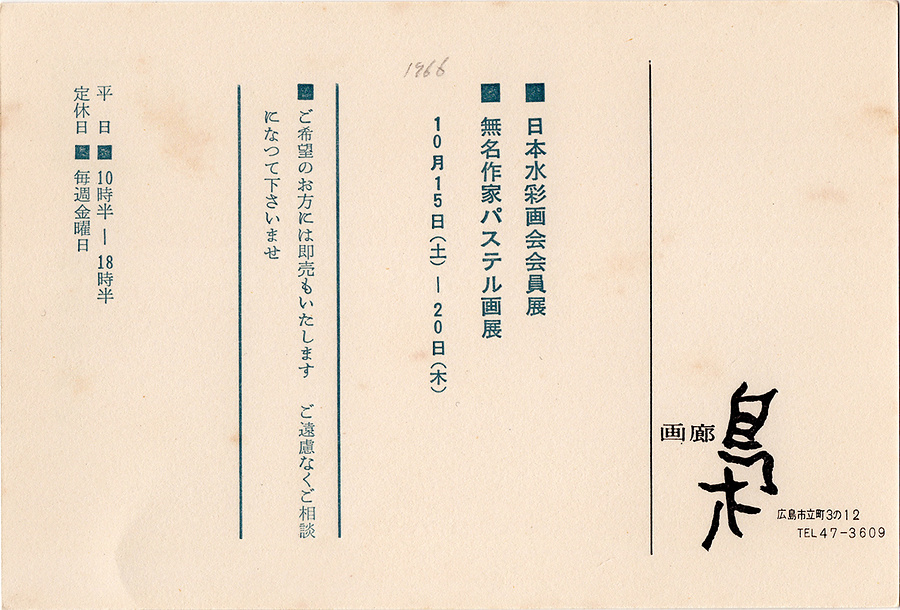 1966
■ 日本水彩画会会員展
■ 無名作家パステル画展
10月15日(土)―20日(木)
■ ご希望のお方には即売もいたします　ご遠慮なくご相談
になつて下さいませ
平　日 ■ 10時半―18時半
定休日 ■ 毎週金曜日
画廊 梟
広島市立町3の12
TEL47-3609